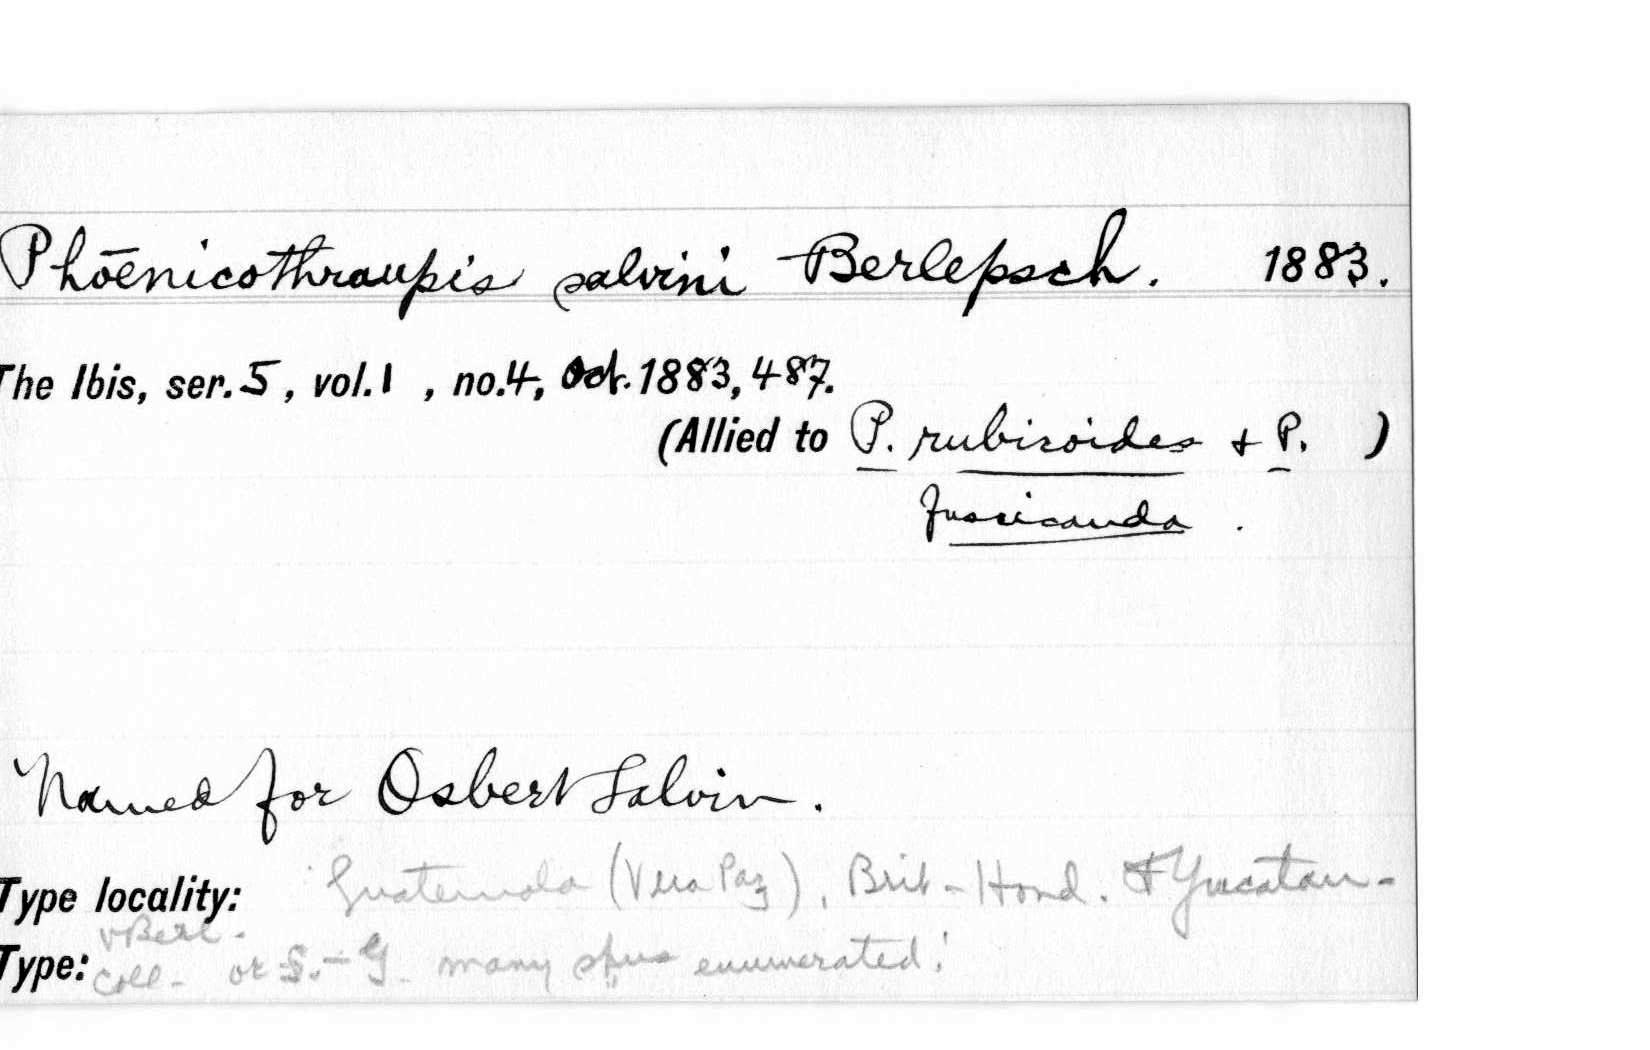 Phōenicothraupis salvini Berlepsch. 1883.
The Ibis, ser.5, vol.1 , no.4, Oct. 1883, 487.
(Allied to P. rubiroides & P. )
fuscicauda .
Named for Osbert Salvin.
Type locality: Guatemala (Vera Paz), Brit-Hond. & Yucatan-
vBerl.
Type: Coll- or S.-G. many spms enumerated!